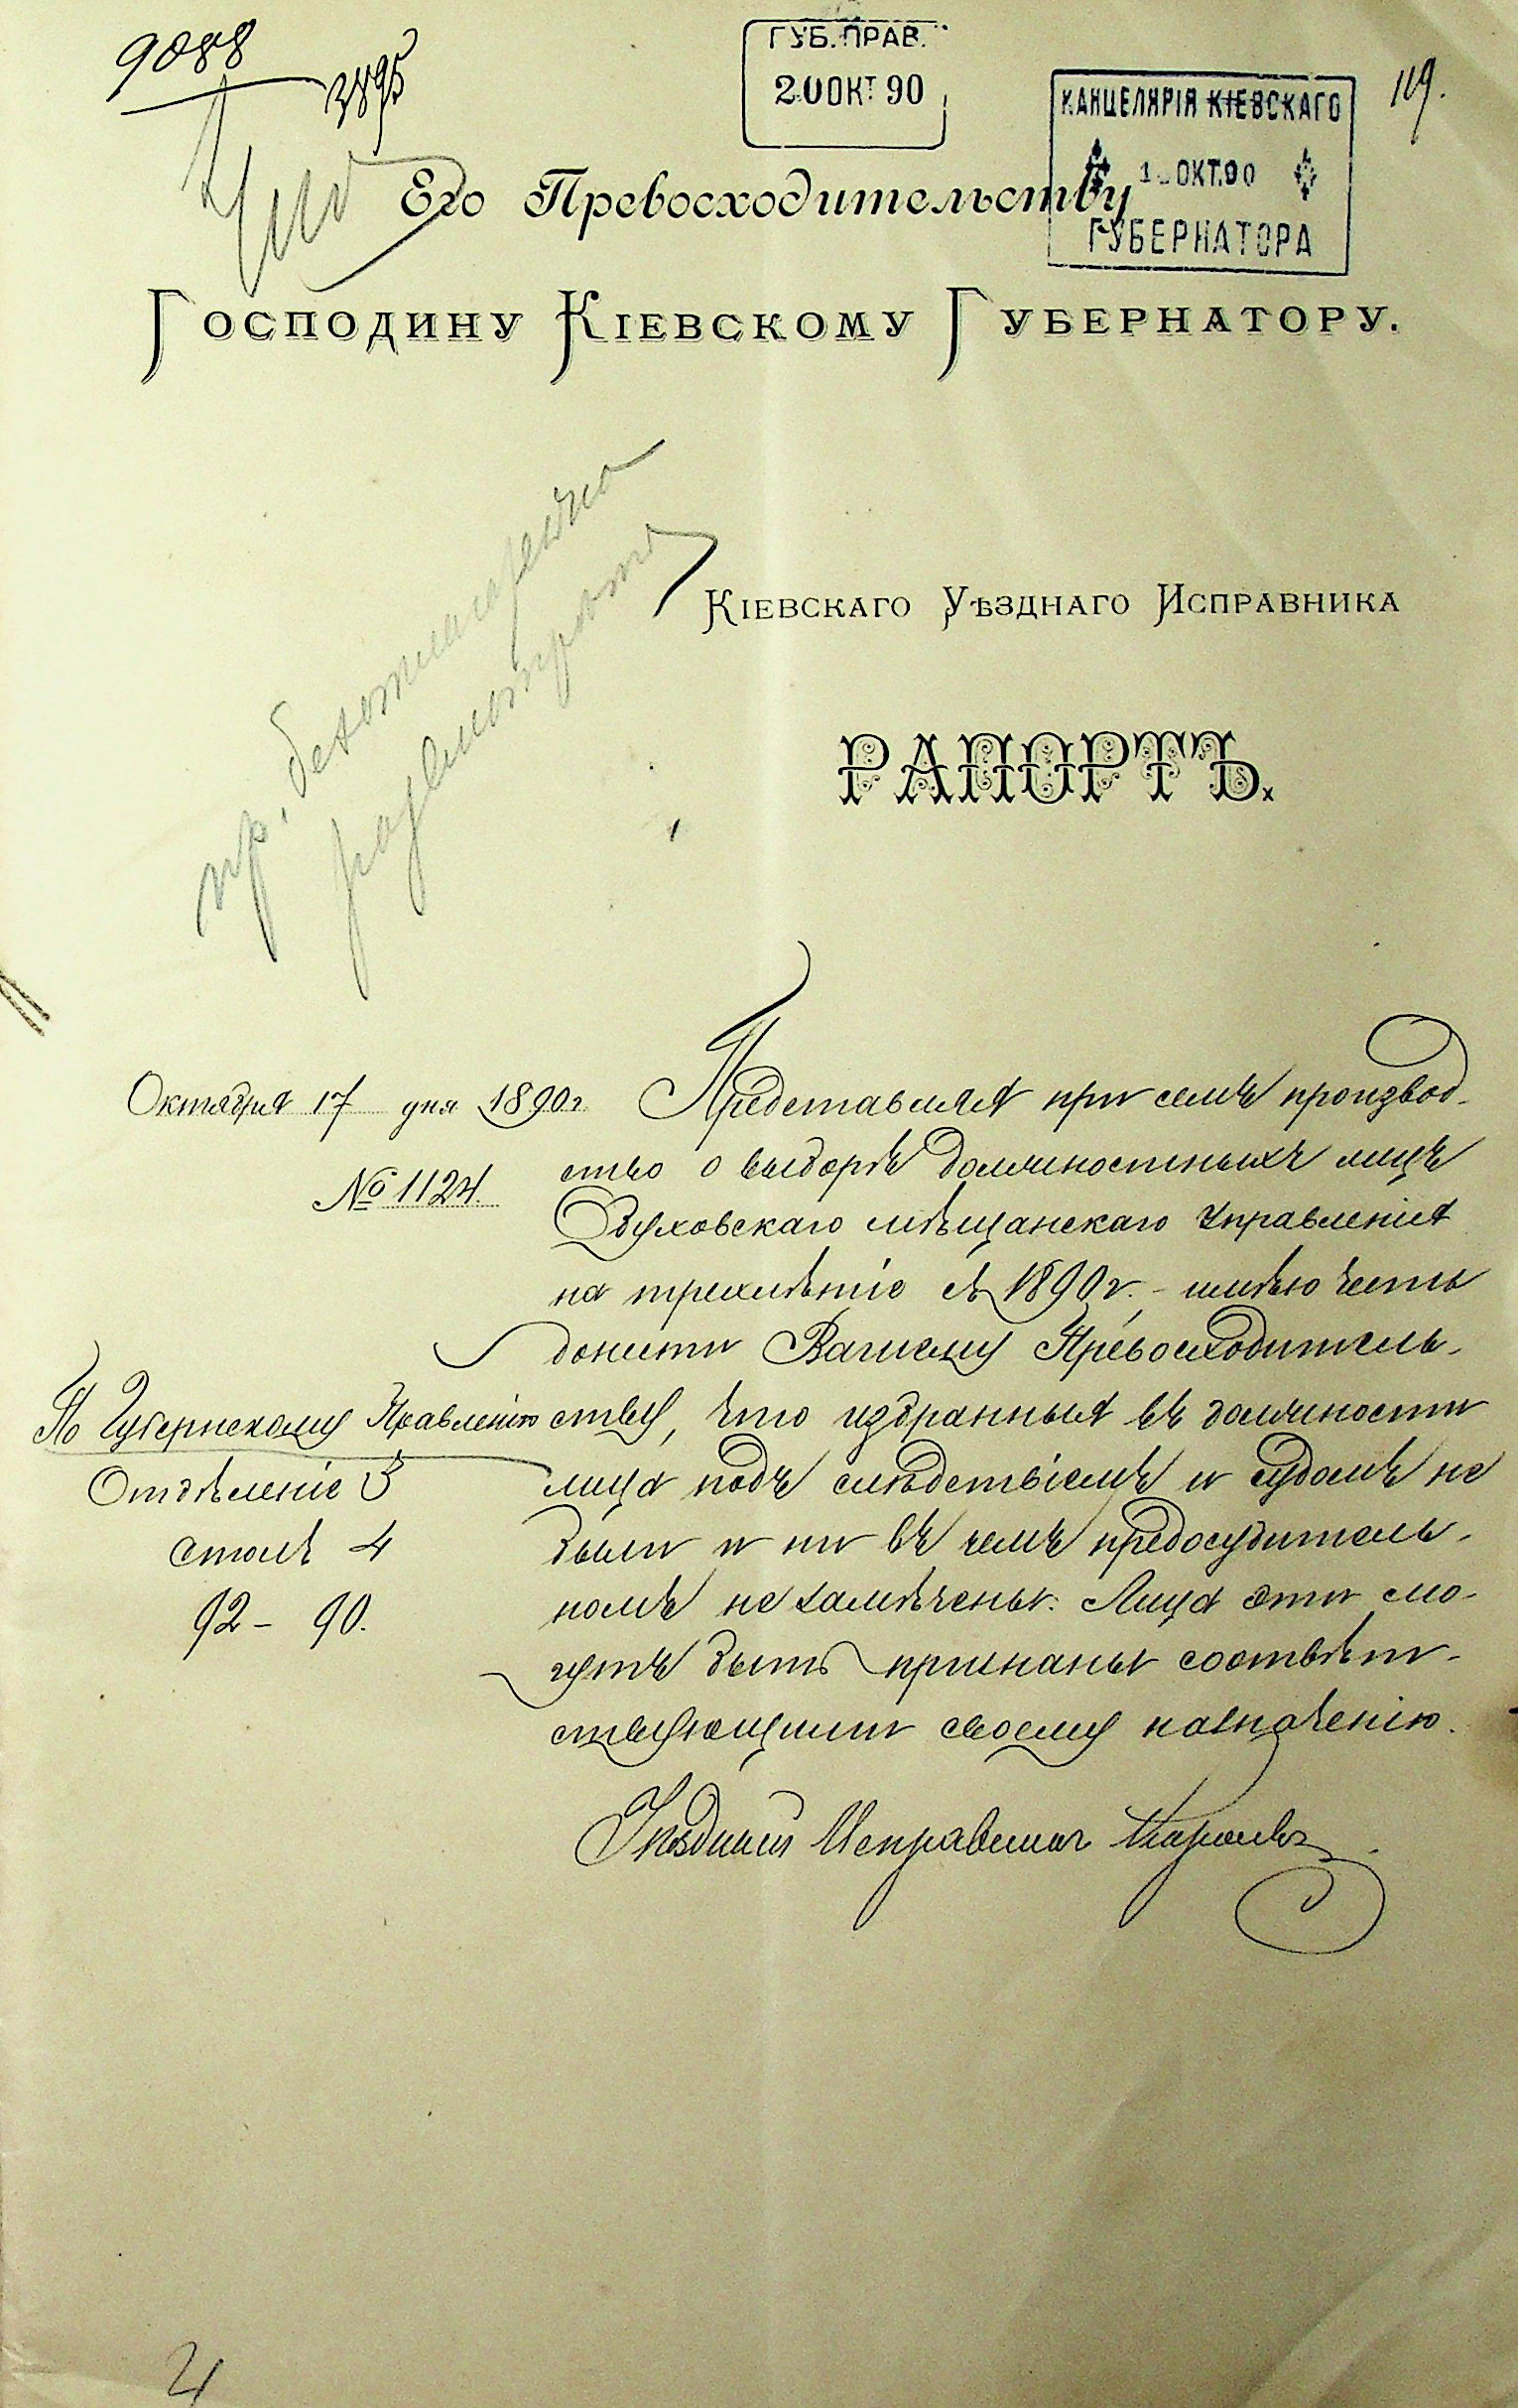 9088
3895
ГУБ. ПРАВ.
20 ОКТ 90
119.
КАНЦЕЛЯРІЯ КІЕВСКАГО
1 ОКТ. 90
ГУБЕРНАТОРА
Его Превосходительству
Господину Кіевскому Губернатору.
пр. безотлагательно
разсмотрѣть
Кіевскаго Уѣзднаго Исправника
РАПОРТЪ.
Октября 17 дня 1890 г.
№ 1124.
Представляя при семъ производ-
ство о выборѣ должностныхъ лицъ
Обуховскаго мѣщанскаго Управленія
на трехлѣтіе съ 1890 г. - имѣю честь
донести Вашему Превосходитель-
ству, что избранныя въ должности
лица подъ слѣдствіемъ и судомъ не
были и ни въ чемъ предосудитель-
номъ не замѣчены. Лица эти мо-
гутъ быть признаны соотвѣт-
ствующими своему назначенію.
По Губернскому Правленію
Отдѣленіе 3
столъ 4
92 - 90.
Уѣздный Исправникъ